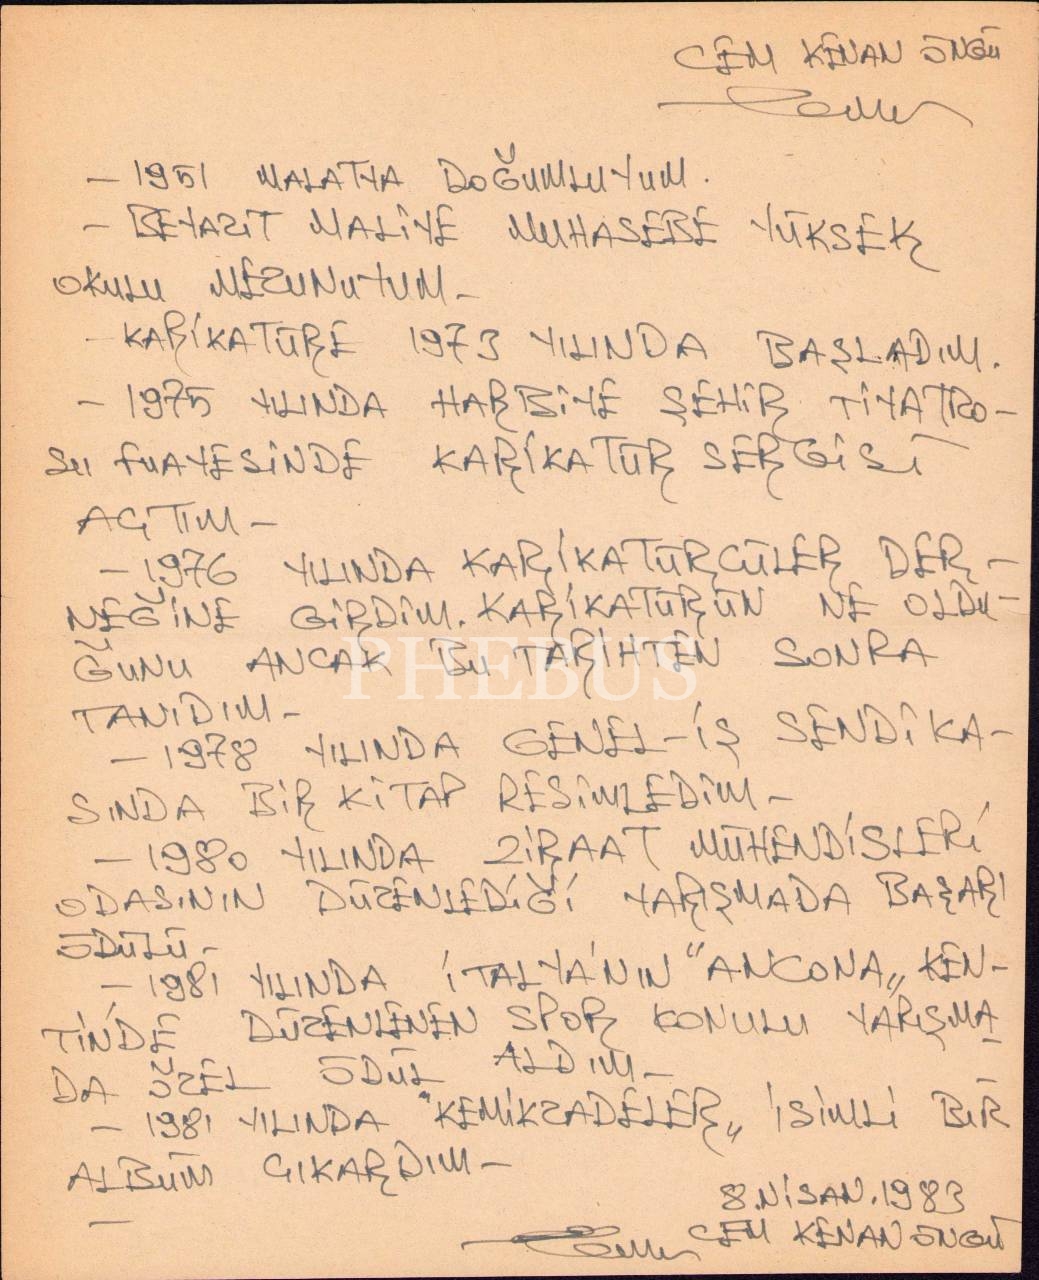 CEM KENAN ÖNGÜ
— 1951 MALATYA DOĞUMLUYUM.
— BEYAZIT MALİYE MUHASEBE YÜKSEK
OKULU MEZUNUYUM —
— KARİKATÜRE 1973 YILINDA BAŞLADIM.
— 1975 YILINDA HARBİYE ŞEHİR TİYATRO-
SU FUAYESİNDE KARİKATÜR SERGİSİ
AÇTIM —
— 1976 YILINDA KARİKATÜRCÜLER DER-
NEĞİNE GİRDİM. KARİKATÜRÜN NE OLDU-
ĞUNU ANCAK BU TARİHTEN SONRA
PHEBUS
TANIDIM —
— 1978 YILINDA GENEL-İŞ SENDİKA-
SINDA BİR KİTAP RESİMLEDİM —
— 1980 YILINDA ZİRAAT MÜHENDİSLERİ
ODASININ DÜZENLEDİĞİ YARIŞMADA BAŞARI
ÖDÜLÜ —
— 1981 YILINDA İTALYA'NIN "ANCONA„ KEN-
TİNDE DÜZENLENEN SPOR KONULU YARIŞMA-
DA ÖZEL ÖDÜL ALDIM —
— 1981 YILINDA "KEMİKZADELER„ İSİMLİ BİR
ALBÜM ÇIKARDIM —
—
8.NİSAN.1983
CEM KENAN ÖNGÜ